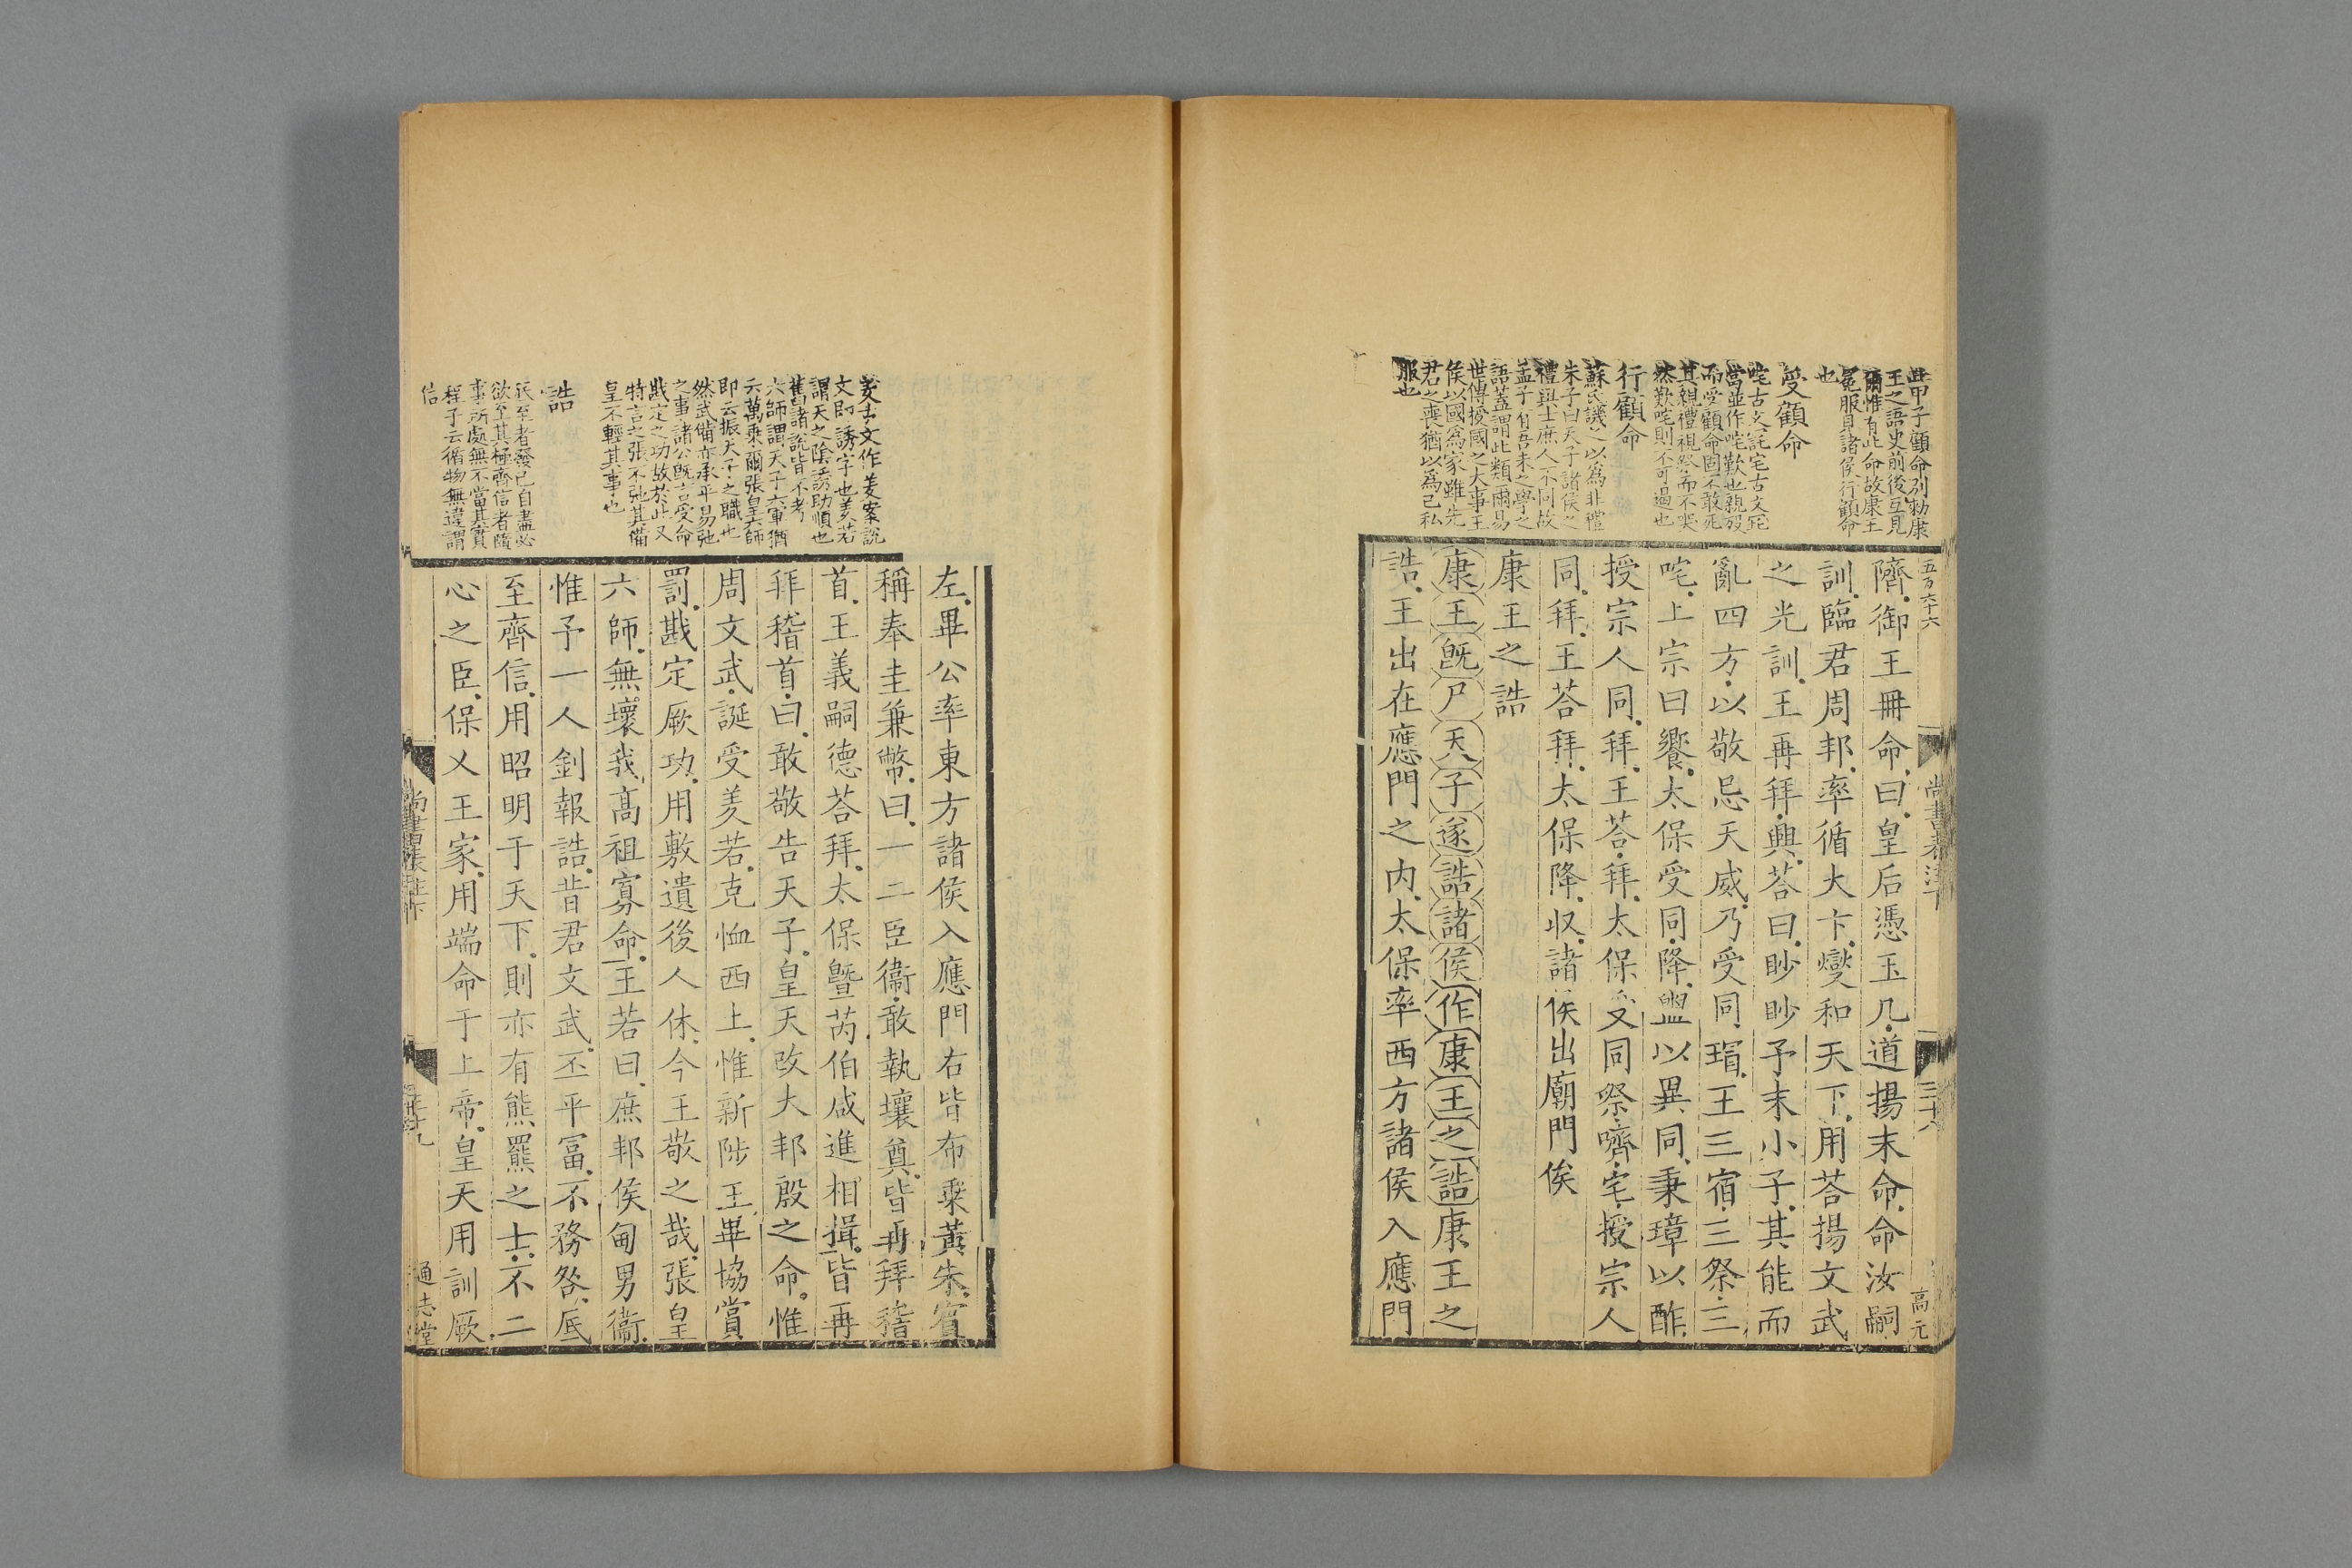 五百六十六
尚書表注下
三十八
高元
此甲子顧命別勑康
王之語史前後互見
爾惟有此命故康王
冕服見諸侯行顧命
也
受顧命
咤古文詫宅古文宅
當並作咤咤歎也親歿
而受顧命固不敢死
其親禮視祭而不哭
然歎咤則不可過也
行顧命
蘇氏譏之以為非禮
朱子曰天子諸侯之
禮與士庶人不同故
孟子有吾未之學之
語蓋謂此類爾易
世傳授國之大事王
侯以國為家雖先
君之喪猶以為己私
服也
隮御王冊命曰皇后憑玉几道揚末命命汝嗣
訓臨君周邦率循大卞燮和天下用荅揚文武
之光訓王再拜興荅曰眇眇予末小子其能而
亂四方以敬忌天威乃受同瑁王三宿三祭三
咤上宗曰饗太保受同降盥以異同秉璋以酢
授宗人同拜王荅拜太保受同祭嚌宅授宗人
同拜王荅拜太保降收諸侯出廟門俟
康王之誥
康王既尸天子遂誥諸侯作康王之誥康王之
誥王出在應門之内太保率西方諸侯入應門
羑古文作羑案說
文即誘字也羑若
謂天之陰誘助順也
舊諸說皆不考
六師謂天子六軍猶
云萬乘爾張皇六師
即云振天子之職也
然武備亦承平易弛
之事諸公既言受命
戡定之功故於此又
特言之張不弛其備
皇不輕其事也
誥
氏至者發己自盡必
欲至其極齊信者隨
事所處無不當其實
程子云循物無違謂
信
左畢公率東方諸侯入應門右皆布乘黃朱賓
稱奉圭兼幣曰一二臣衞敢執壤奠皆再拜稽
首王義嗣德荅拜太保曁芮伯咸進相揖皆再
拜稽首曰敢敬告天子皇天改大邦殷之命惟
周文武誕受羑若克恤西土惟新陟王畢協賞
罰戡定厥功用敷遺後人休今王敬之哉張皇
六師無壞我高祖寡命王若曰庶邦侯甸男衞
惟予一人釗報誥昔君文武丕平富不務咎厎
至齊信用昭明于天下則亦有熊羆之士不二
心之臣保乂王家用端命于上帝皇天用訓厥
尚書表注下
三十九
通志堂